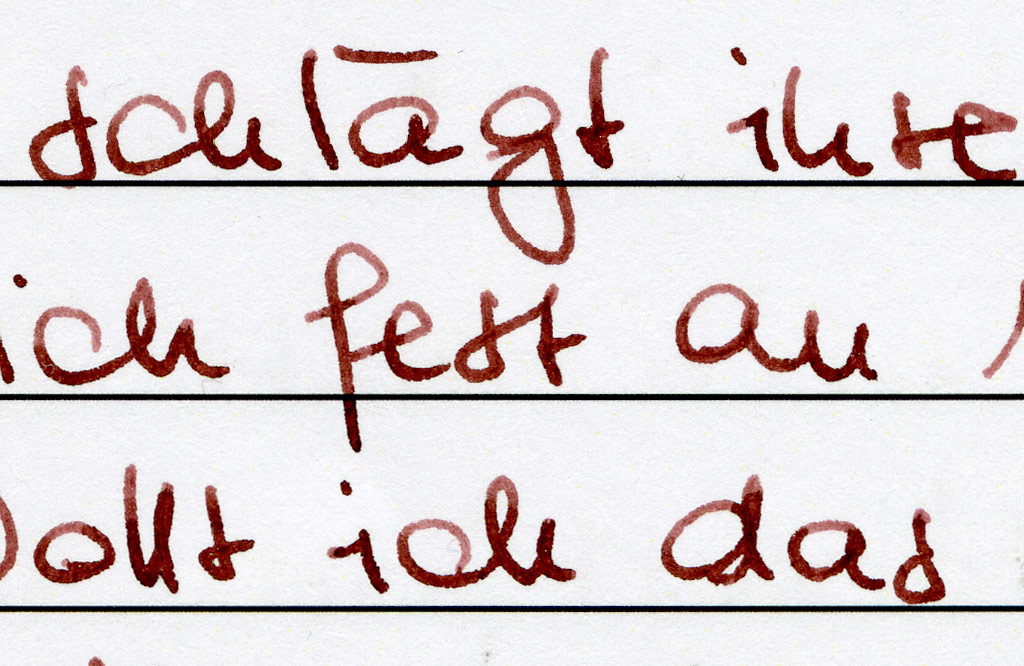 schlägt ihre
ich fest an
ollt ich das